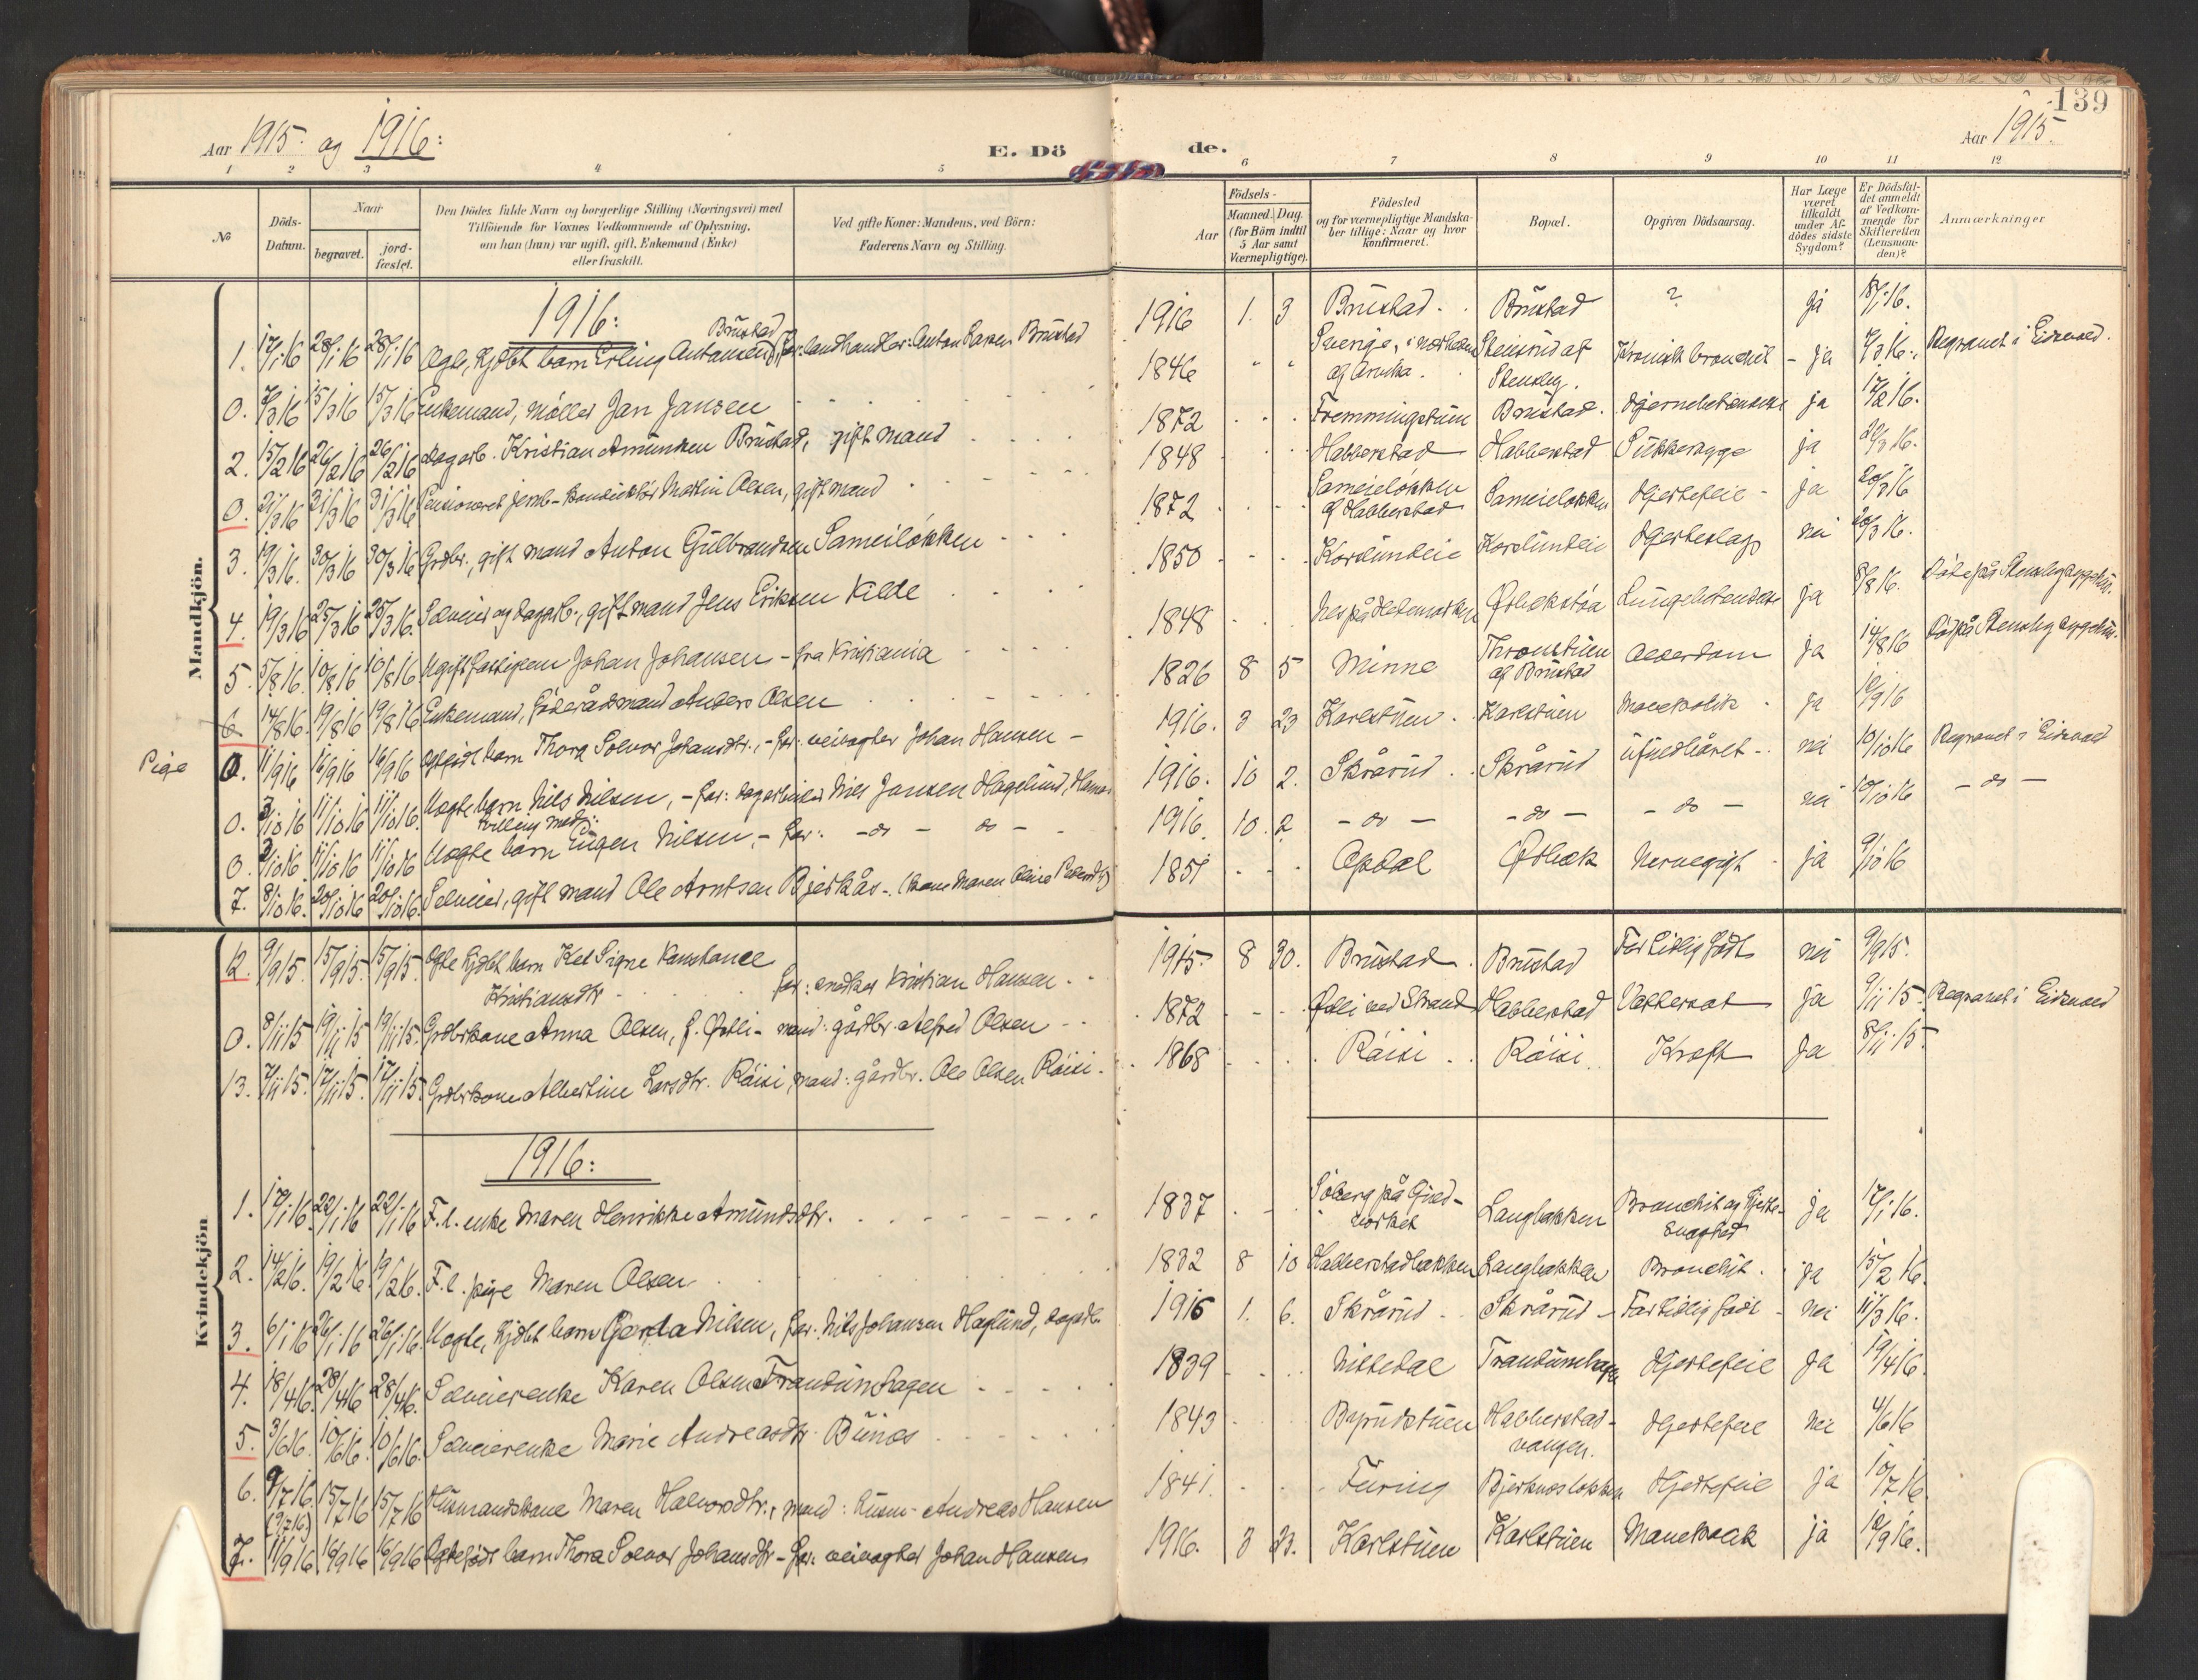 139
Aar 1915. og 1916:
E. Dö
de.
Aar 1915.
1 2 3 4 5 6 7 8 9 10 11 12
No
Döds-Datum.
Naar
begravet.
jord-fæstet.
Den Dödes fulde Navn og borgerlige Stilling (Næringsvei) med
Tilföiende for Voxnes Vedkommende af Oplysning,
om han (hun) var ugift, gift, Enkemand (Enke)
eller fraskilt.
Ved gifte Koner: Mandens, ved Börn:
Faderens Navn og Stilling.
Födsels-
Aar
Maaned. Dag.
(for Börn indtil
5 Aar samt
Værnepligtige).
Födested
og for værnepligtige Mandska-
ber tillige: Naar og hvor
konfirmeret.
Bopæl.
Opgiven Dödsaarsag.
Har Læge
været
tilkaldt
under Af-
dödes sidste
Sygdom?
Er Dödsfal-
det anmeldt
af Vedkom-
mende for
Skifteretten
(Lensman-
den)?
Anmærkninger
Mandkjön.
1916:
1. 17/1 16 28/1 16 28/1 16 Ægte, hjdbt barn Erling Antonsen Brustad, far: landhandler Anton Larsen Brustad 1916 1. 3 Brustad Brustad ? ja 18/1 16.
0. 7/3 16 15/3 16 15/3 16 Enkemand, møller Jan Jansen 1846 " " Sverige, i nærheden af Arvika. Stensrud af Stensby. Kronisk bronchit - ja 7/3 16. Begravet i Eidsvold.
2. 15/2 16 26/2 16 26/2 16 Dagarb. Kristian Amundsen Brustad, gift mand 1872 Fremmingstuen Brustad. ja 17/2 16.
0. 21/3 16 31/3 16 31/3 16 Pensioneret jernb-konduktør Martin Olsen, gift mand 1848 Habberstad Habberstad Sukkersyge ja 22/3 16.
3. 19/3 16. 30/3 16 30/3 16 Grdbr., gift mand Anton Gulbrandsen Sameiløkken 1872 Sameieløkken af Habberstad Sameieløkken Hjertefeil - ja 20/3 16
4. 19/3 16 25/3 16 25/3 16. Selveier og dagarb., gift mand Jens Eriksen Kilde 1850 Hjerteslag nei 20/3 16.
5. 5/8 16. 10/8 16 10/8 16 Ugift fattigem Johan Johansen - fra Kristiania 1848 Nes på Hedemarken ja 8/8 16. Døde på Stensby sygehus.
6 14/8 16. 19/8 16 19/8 16 Enkemand, føderådsmand Anders Olsen 1826 8 5 Minne Thronstuen af Brustad Alderdom ja 14/8 16 Død på Stensby sygehus.
Pige 0. 11/9 16 16/9 16 16/9 16 Ægtefødt barn Thora Solvor Johansdtr., - far: veivogter Johan Hansen - 1916. 3 23 Karlstuen Karlstuen ja 12/9 16
0. 3/10 16 11/10 16 11/10 16. Uægte barn Nils Nilsen, - far: dagarbeider Nils Jansen Hagelund, 1916. 10 2. Skrårud Skrårud ufuldbåret - nei 10/10 16 Begravet i Eidsvold
tvilling med:
0. 3/10 16. 11/10 16. 11/10 16 Uægte barn Eugen Nilsen, - far: - do - do - 1916. 10. 2 - do - - do - - do - nei 10/10 16 - do -
7. 8/10 16. 20/10 16 20/10 16. Selveier, gift mand Ole Arntsen Bjerkås - (kone Maren Oline 1851 Opdal Østbæk ja 9/10 16
Kvindekjön
12. 9/9 15. 15/9 15. 15/9 15. Ægte hjdbt barn Signe Konstance Kristiansdtr far: snedker Kristian Hansen 1915 8 30. Brustad Brustad For tidlig født nei 9/9 15.
0. 8/11 15 19/11 15 19/11 15. Grdbrkone Anna Olsen, f. Østli - mand: gårdbr. Alfred Olsen 1872 Østli ved Strand Habberstad Vattersot ja 9/11 15. Begravet i Eidsvold
13. 7/11 15. 17/11 15. 17/11 15. Grdbrkone Albertine Larsdtr. Räisi, mand: gårdbr. Ole Olsen Räisi. 1868 Räisi Räisi Kræft ja 8/11 15.
1916:
1. 17/1 16. 22/1 16 22/1 16 F.l. enke Maren Henrikke Amundsdtr. 1837 Langbakken Bronchit og Hjertesvaghed ja 17/1 16.
2. 14/2 16. 19/2 16. 19/2 16. F.l. pige Maren Olsen 1832 8 10 Habberstadbakken Langbakken Bronchit. ja 15/2 16.
3. 6/1 16 26/1 16 26/1 16. Uægte, hjdbt barn Gerda Nilsen, far: Nils Johansen Haglund, dagarb. 1916 1. 6. Skrårud Skrårud - For tidlig født - nei 11/3 16.
4. 18/4 16. 28/4 16 28/4 16. Selveierenke Karen Olsen Trandumhagen 1839 Nittedal Trandumhagen Hjertefeil ja 19/4 16.
5. 3/6 16. 10/6 16. 10/6 16. Selveierenke Marie Andreasdtr Bunes 1843 Habberstadvangen. Hjertefeil nei 4/6 16
6. 9/7 16. (9/7 16) 15/7 16 15/7 16 Husmandskone Maren Halvorsdtr., mand: husm. Andreas Hansen 1841. Furing Bjerknesløkken Hjertefeil ja 10/7 16.
7. 11/9 16 16/9 16 16/9 16 Ægtefødt barn Thora Solvor Johansdtr - far: veivogter Johan Hansen 1916. 3 23. Karlstuen Karlstuen ja 12/9 16.